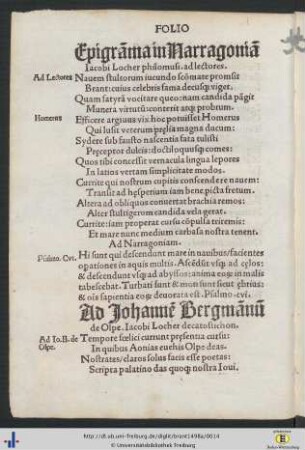 FOLIO
Epigrãma in Narragoniã
Iacobi Locher philomusi. ad lectores.
Ad Lectores
Nauem stultorum iucundo scõmate promsit
Brant: cuius celebris fama decusqʒ viget.
Quam satyrã vocitare queo: nam candida pãgit
Munera virtuti: conterit atqʒ probrum.
Homerus
Efficere argiuus vix hoc potuisset Homerus
Qui lusit veterum prelia magna ducum:
Sydere sub fausto nascentia fata tulisti
Preceptor dulcis: doctiloquusqʒ comes:
Quos tibi concessit vernacula lingua lepores
In latios vertam simplicitate modos.
Currite qui nostrum cupitis conscendere nauem:
Transit ad hesperium iam bene picta fretum.
Altera ad obliquos conuertat brachia remos:
Alter stultigerum candida vela gerat.
Currite: iam properat cursu cõpulsa triremis:
Et mare nunc medium carbasa nostra tenent.
Ad Narragoniam.
Psalmo. Cvi.
Hi sunt qui descendunt mare in nauibus/facientes
opationes in aquis multis. Ascẽdũt vsqʒ ad cęlos:
& descendunt vsqʒ ad abyssos: anima eoꝝ in malis
tabescebat. Turbati sunt & moti sunt sicut ebrius:
& ois sapientia eoꝝ deuorata est. Psalmo. cvi.
Ad Johannẽ Bergmãnũ
de Olpe. Iacobi Locher decatostichon.
Ad Io. B. de Olpe.
Tempore fœlici currunt presentia cursu:
In quibus Aonias euehis Olpe deas.
Nostrates/claros solus facis esse poetas:
Scripta palatino das quoqʒ nostra Ioui.
http://dl.ub.uni-freiburg.de/diglit/brant1498a/0014
© Universitätsbibliothek Freiburg